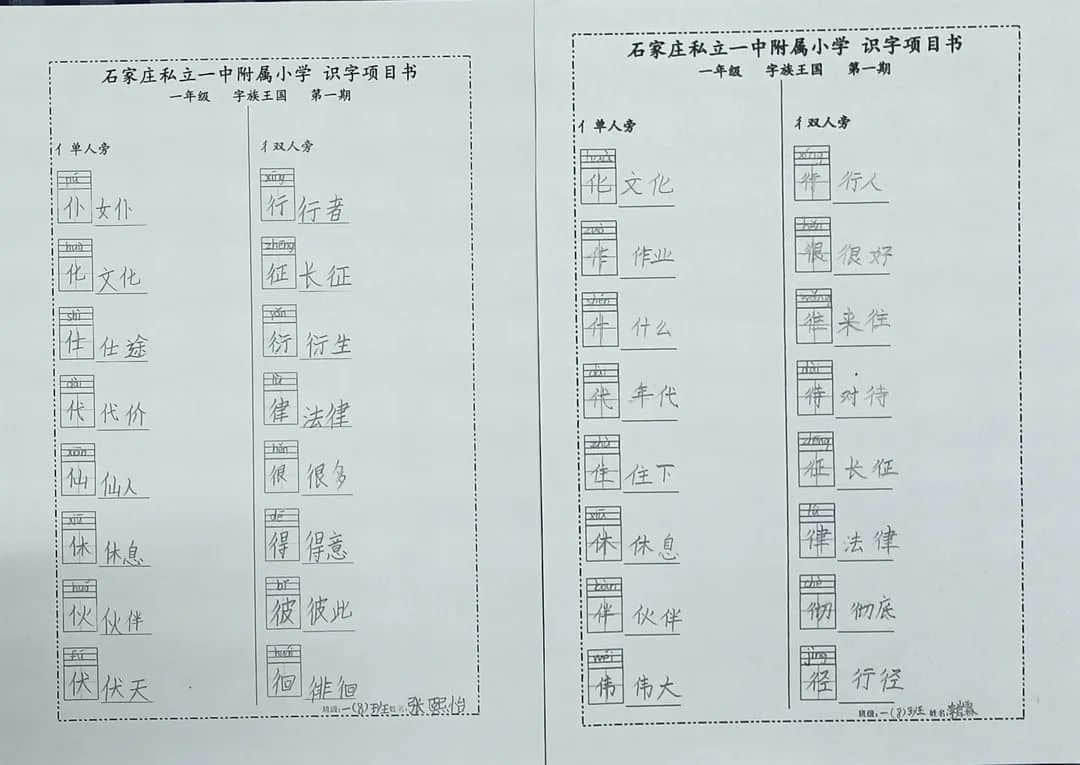 石家庄私立一中附属小学 识字项目书
一年级 字族王国 第一期
亻单人旁
pú
仆 女仆
huà
化 文化
shì
仕 仕途
dài
代 代价
xiān
仙 仙人
xiū
休 休息
huǒ
伙 伙伴
fú
伏 伏天
彳双人旁
xíng
行 行者
zhēng
征 长征
yǎn
衍 衍生
lǜ
律 法律
hěn
很 很多
dé
得 得意
bǐ
彼 彼此
huái
徊 徘徊
班级:一(8)班 姓名:张熙怡
石家庄私立一中附属小学 识字项目书
一年级 字族王国 第一期
亻单人旁
huà
化 文化
zuò
作 作业
shén
什 什么
dài
代 年代
zhù
住 住下
xiū
休 休息
bàn
伴 伙伴
wěi
伟 伟大
彳双人旁
xíng
行 行人
hěn
很 很好
wǎng
往 来往
dài
待 对待
zhēng
征 长征
lǜ
律 法律
chè
彻 彻底
jìng
径 行径
班级:一(8)班 姓名: